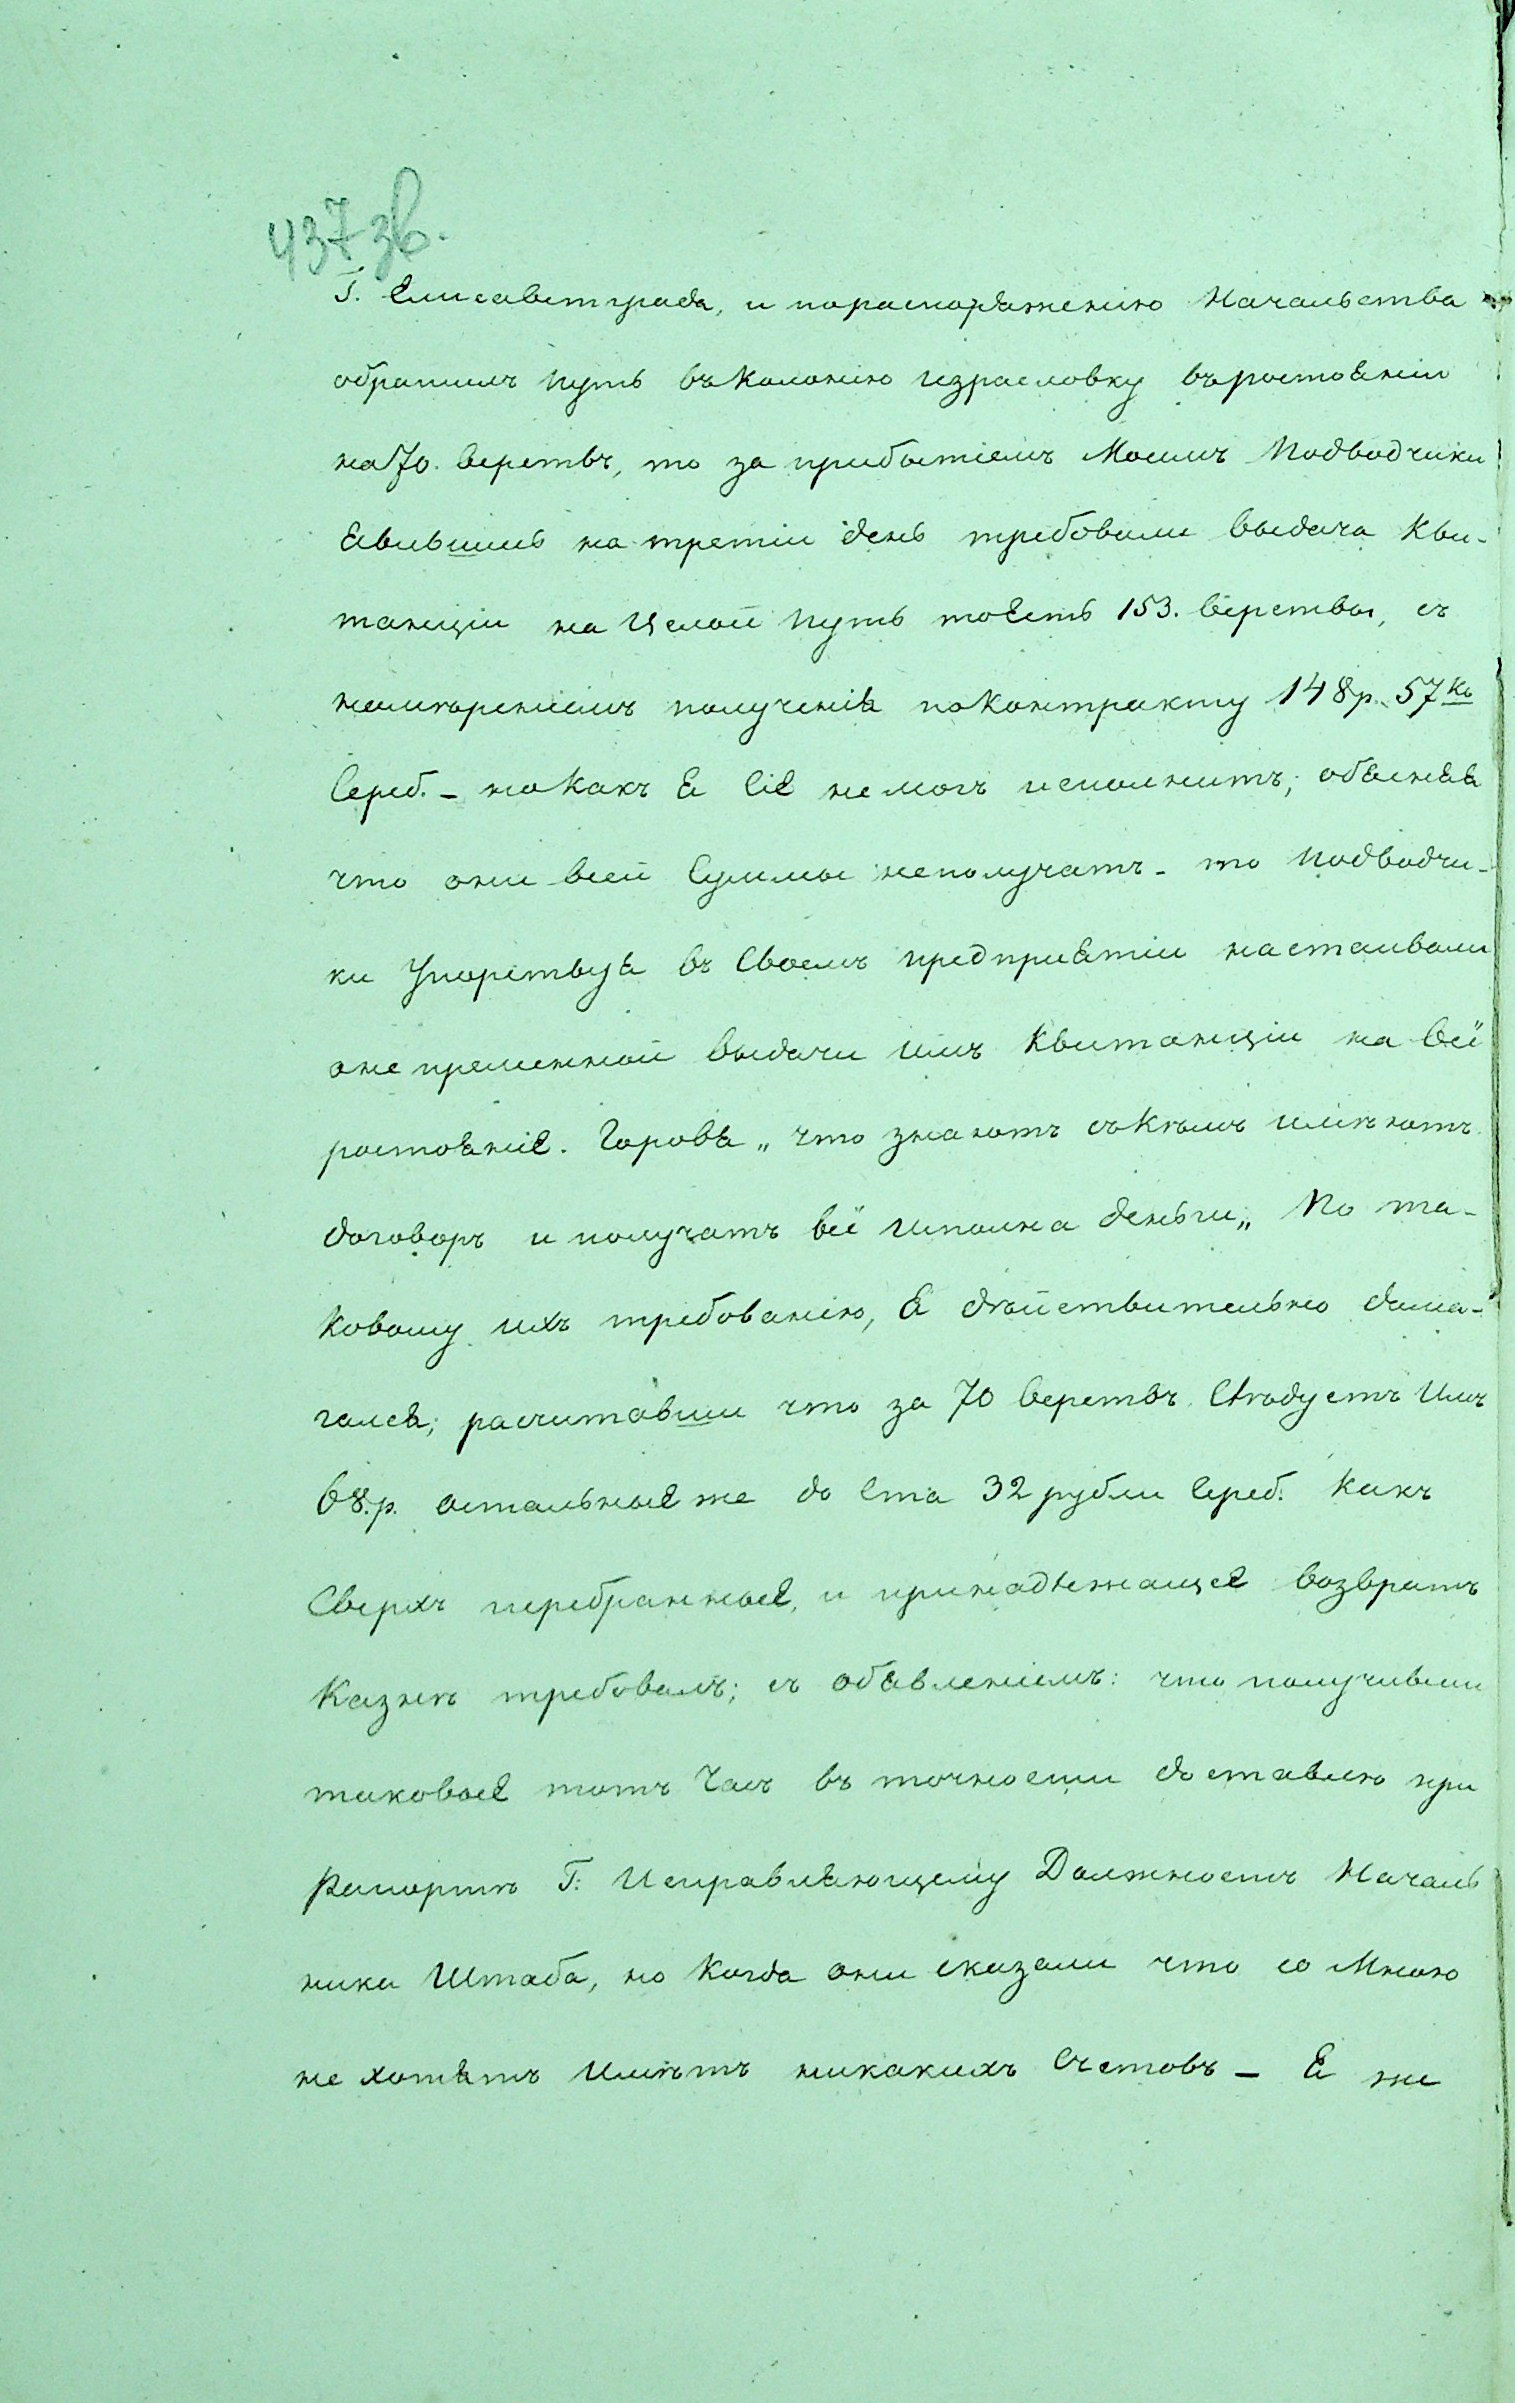 437 зв.
Г. Елисаветграда, и пораспоряжению Начальства
обратилъ путь въ Колонию Израсловку въ ростоянии
на 70. верствъ, то за прибытіемъ Моимъ Подводчики
явившись на третіи день требовали выдача Кви-
танціи на Целой путь тоесть 153. верствы, съ
намѣреніемъ полученія по Контракту 148 р. 57 Ко
Сереб. - но Какъ я Сіе немогъ исполнитъ; обясняя
что они всей Суммы неполучатъ - то Подводчи-
ки Упорствуя въ Своемъ предприятіи настаивали
онепременной выдачи имъ Квитанціи на Всё
ростояніе. Говоря „что знаютъ съ Кѣмъ имѣютъ
договоръ и получатъ всё Исполна деньги„ По та-
Ковому ихъ требованію, я дѣйствительно дома-
гался; расчитавши что за 70 верствъ Слѣдуетъ Имъ
68.р. остальные же до Ста 32 рубли Сереб. Какъ
Сверхъ перебранные, и принадлежащее возвратъ
Казнѣ требовалъ; съ обявленіемъ: что получивши
таковые тотъ Часъ въ точности доставлю при
Рапортѣ Г: Исправляющему Должность Началь
ника Штаба, но Когда они сказали что со Мною
не хотятъ Имѣтъ никакихъ Счетовъ - Я же